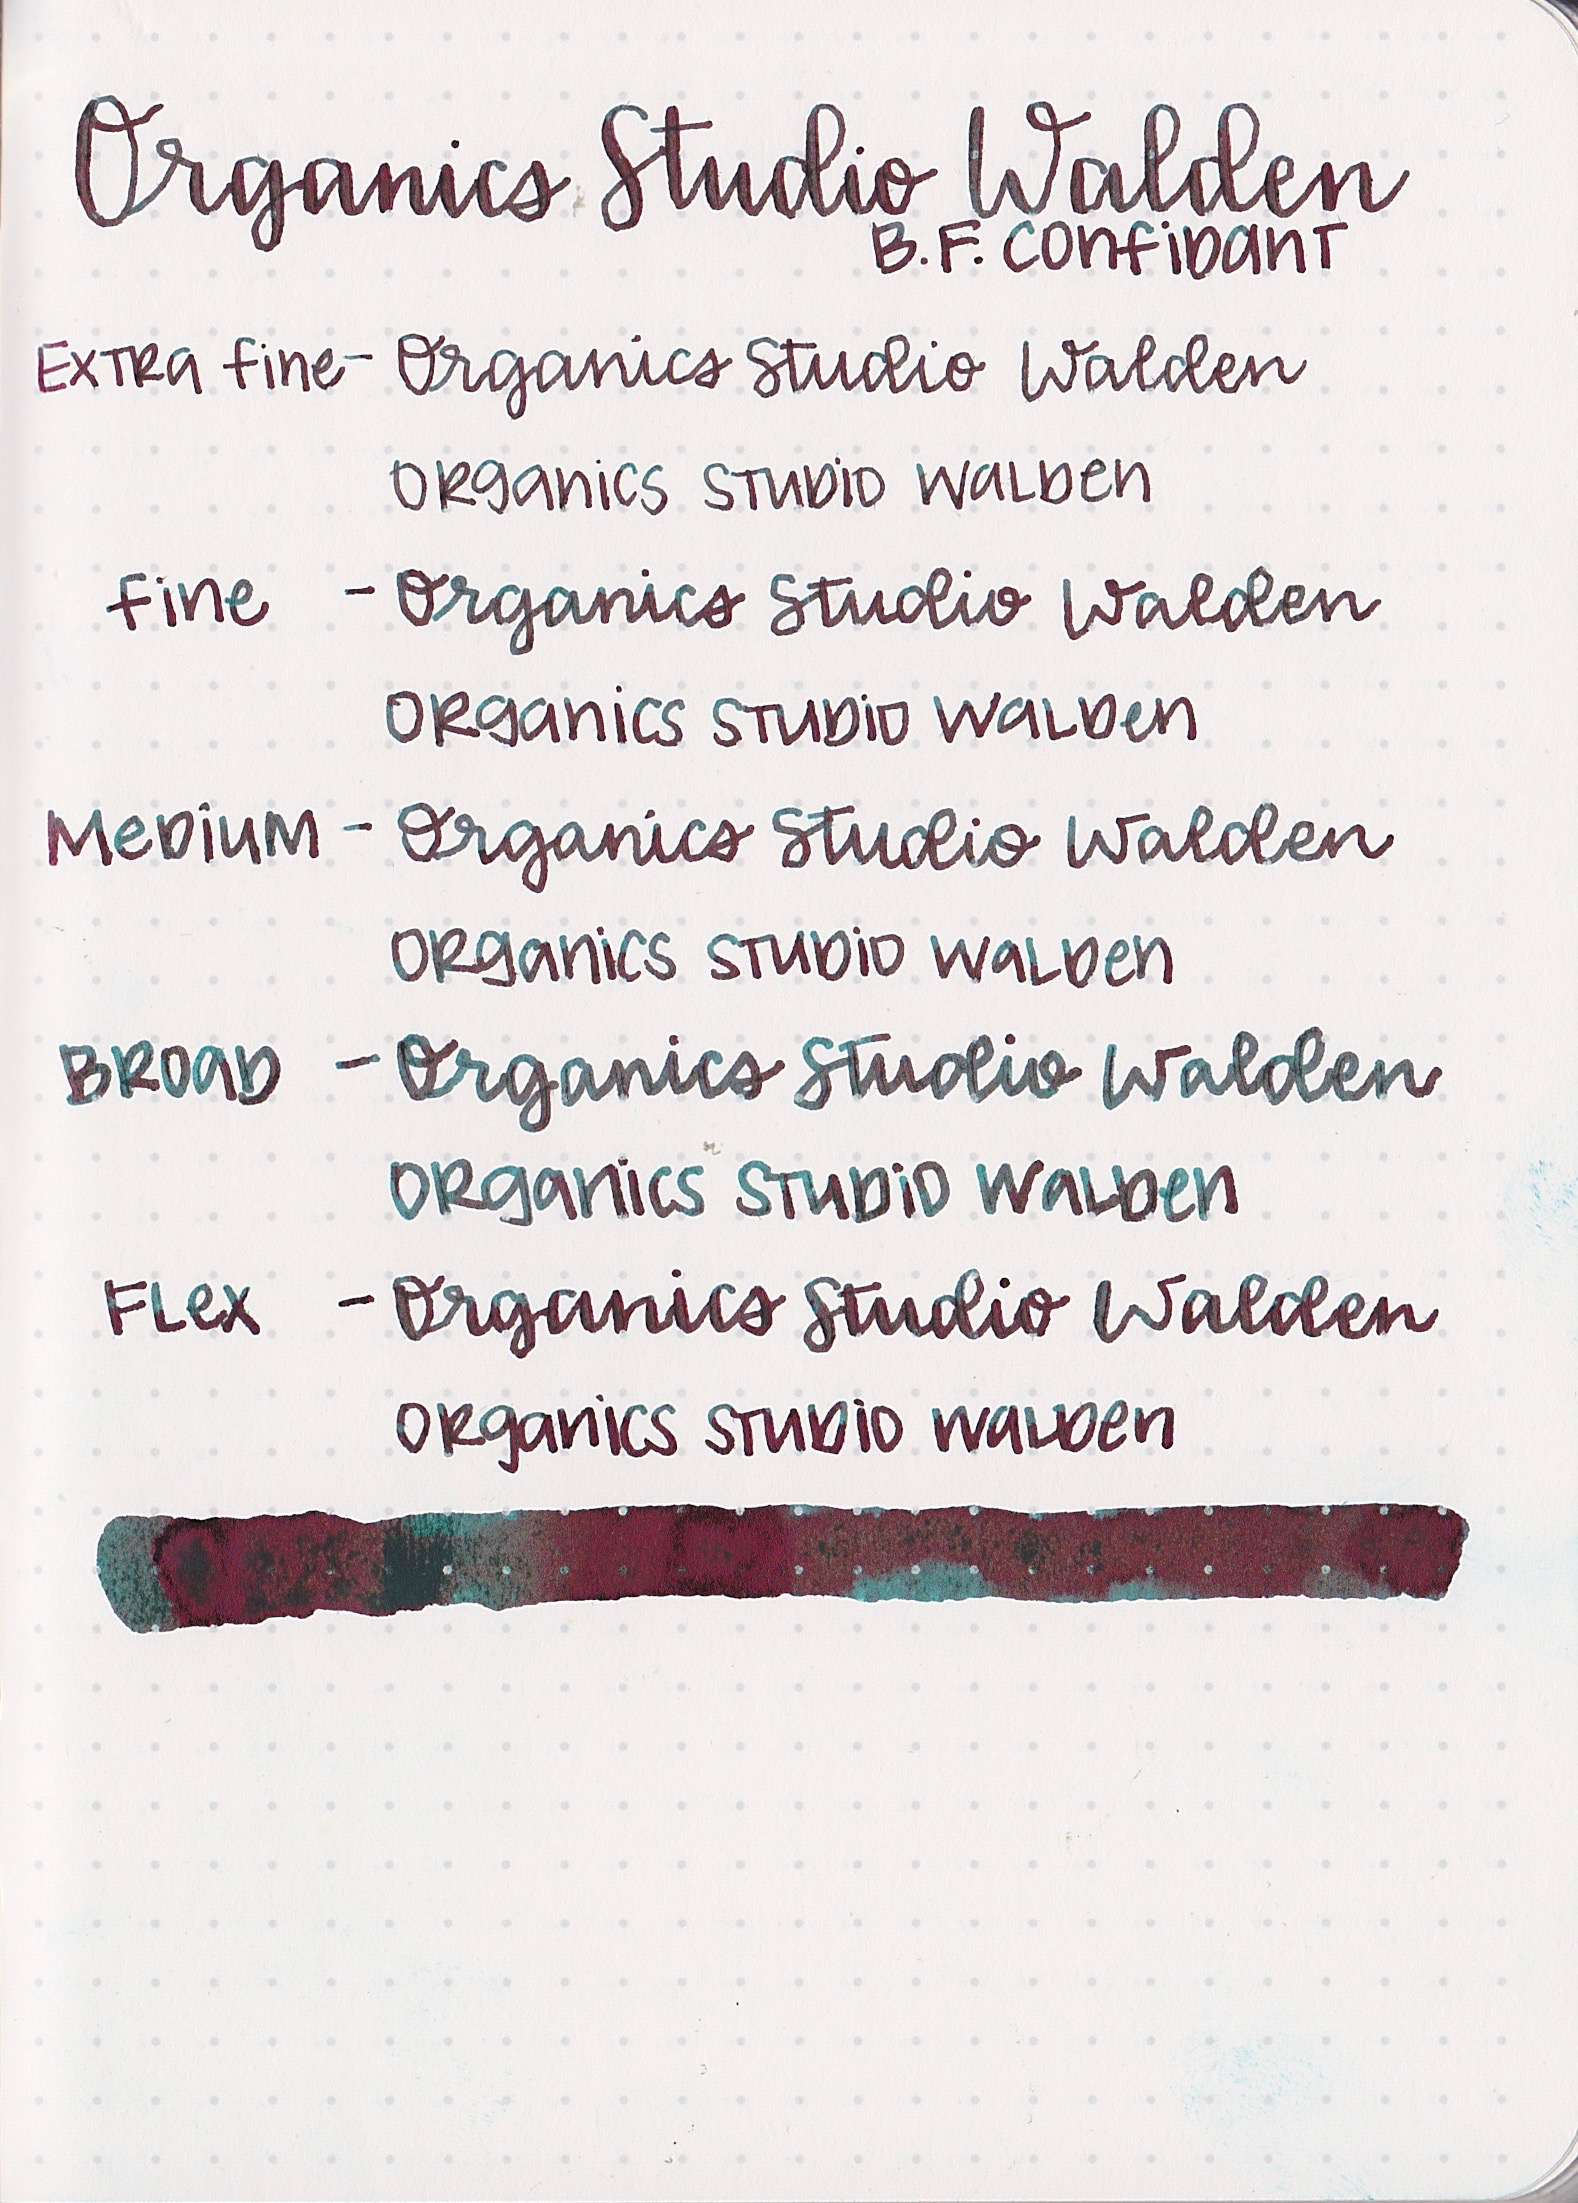 Organics Studio Walden
B.F. Confidant
Extra fine - Organics Studio Walden
Organics Studio Walden
fine - Organics Studio Walden
Organics Studio Walden
Medium - Organics Studio Walden
Organics Studio Walden
Broad - Organics Studio Walden
Organics Studio Walden
Flex - Organics Studio Walden
Organics Studio Walden